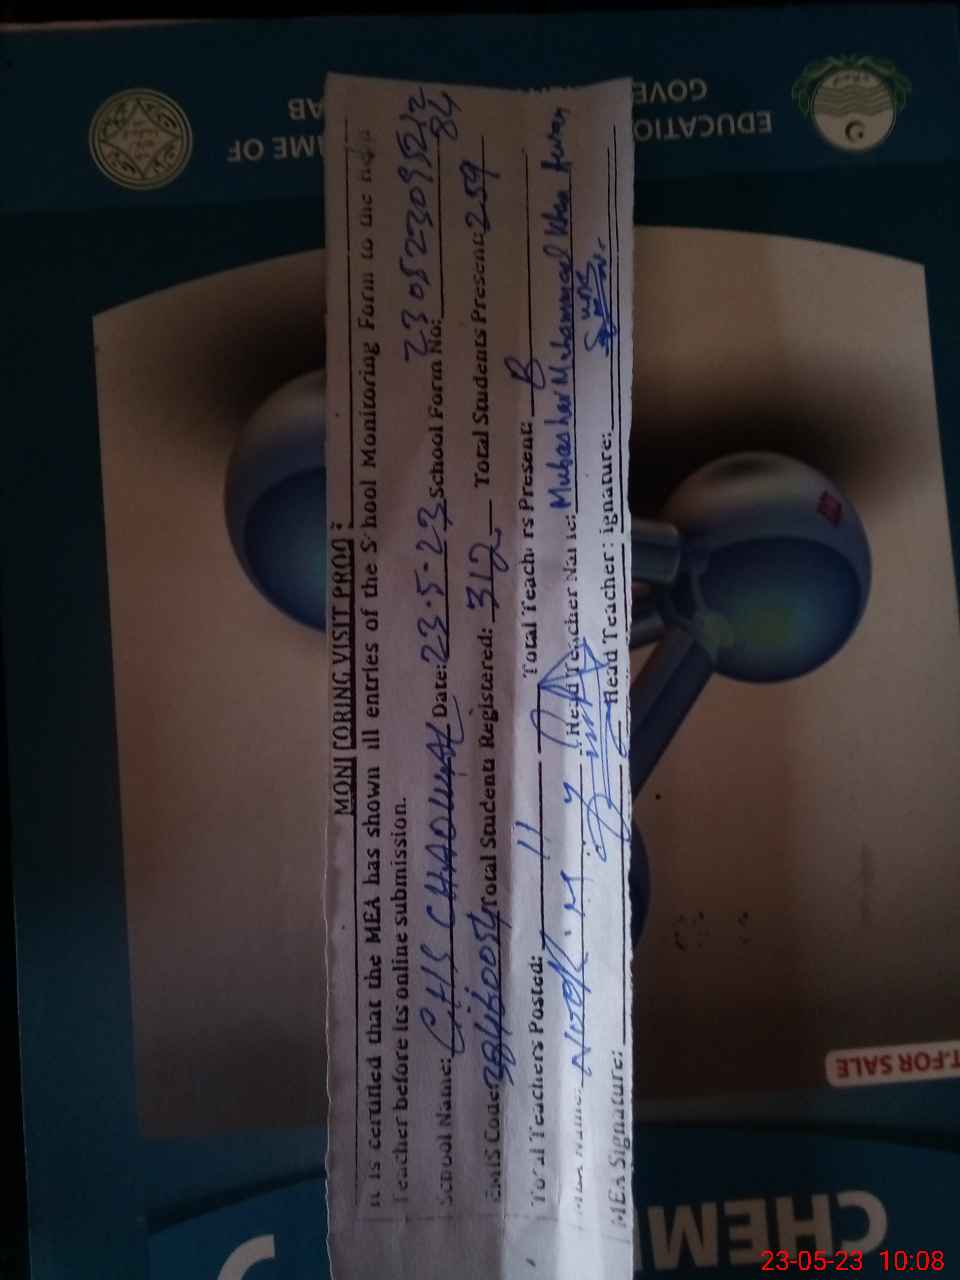 MONITORING VISIT PROO
It is certified that the MEA has shown all entries of the School Monitoring Form to the
Teacher before its online submission.
School Name: GHS CHAOWAL Date: 23.5.23 School Form No: 2305230952/2
84
EMIS Code: 38460054 Total Students Registered: 312 Total Students Present: 259
Total Teachers Posted: 11 Total Teachers Present: 8
MEA Name: Head Teacher Name: Mubashar Muhammad Khan Awan
MEA Signature: Head Teacher Signature:
EDUCATIO
GOVE
AB
ME OF
T-FOR SALE
CHEM
23-05-23 10:08